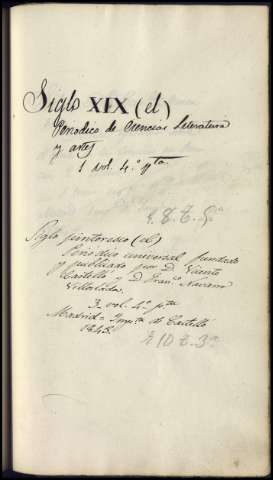 Siglo XIX (el)
Periodico de Ciencias Literatura
y artes
1 vol. 4.º pta
E. 8 T. 5.º
Siglo pintoresco (el)
Periodico universal fundado
y publicado por D. Vicente
Castelló y D. Franc.º Navarro
Villoslada.
3 vol. 4.º pta
Madrid = Impta de Castelló
1845.
E 10 T. 3.º